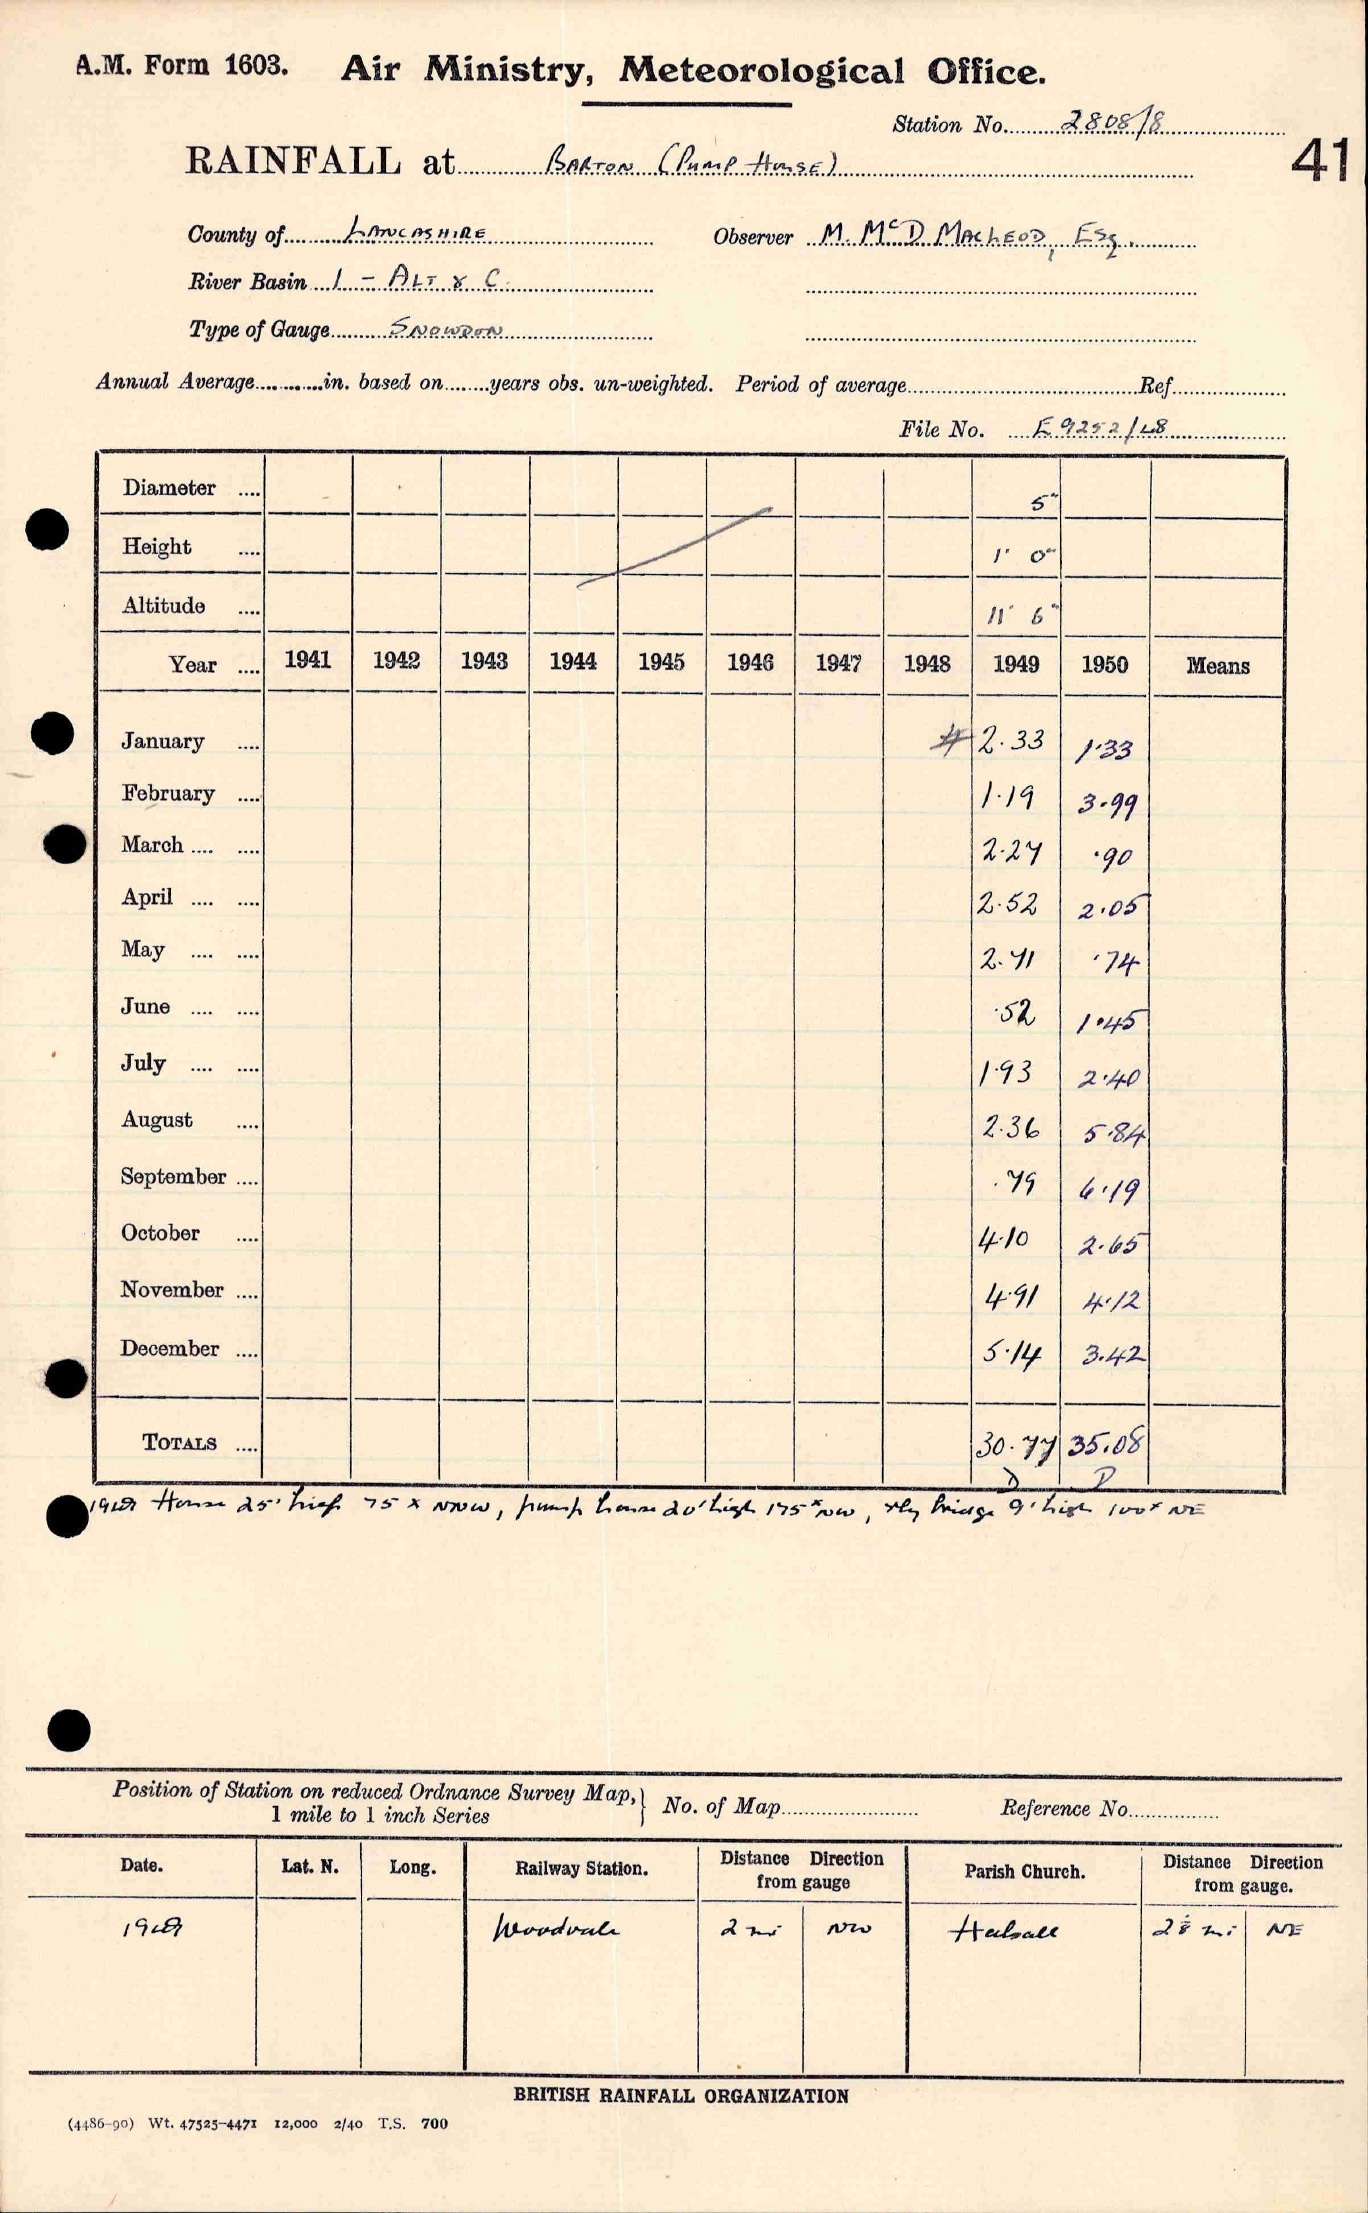 A.M. Form 1603. Air Ministry, Meteorological Office.
Station No. 2808/8
41
RAINFALL at BARTON (PUMP HOUSE)
County of LANCASHIRE Observer M. McD MACLEOD, ESq.
River Basin 1 - ALT & C.
Type of Gauge SNOWDON
Annual Average in. based on years obs. un-weighted. Period of average Ref
File No. E9252/48
Diameter 5"
Height 1' 0"
Altitude 11' 6"
Year 1941 1942 1943 1944 1945 1946 1947 1948 1949 1950 Means
January # 2.33 1.33
February 1.19 3.99
March 2.27 .90
April 2.52 2.05
May 2.71 .74
June .52 1.45
July 1.93 2.40
August 2.36 5.84
September .79 6.19
October 4.10 2.65
November 4.91 4.12
December 5.14 3.42
TOTALS 30.77 35.08
D D
House 25' high 75 x NNW, pump house 20' high 175x NW, rly bridge 9' high 100x NE
Position of Station on reduced Ordnance Survey Map, 1 mile to 1 inch Series } No. of Map Reference No.
Date. Lat. N. Long. Railway Station. Distance Direction from gauge Parish Church. Distance Direction from gauge.
Woodvale 2 mi NW Halsall mi NE
BRITISH RAINFALL ORGANIZATION
(4486-90) Wt. 47525-4471 12,000 2/40 T.S. 700